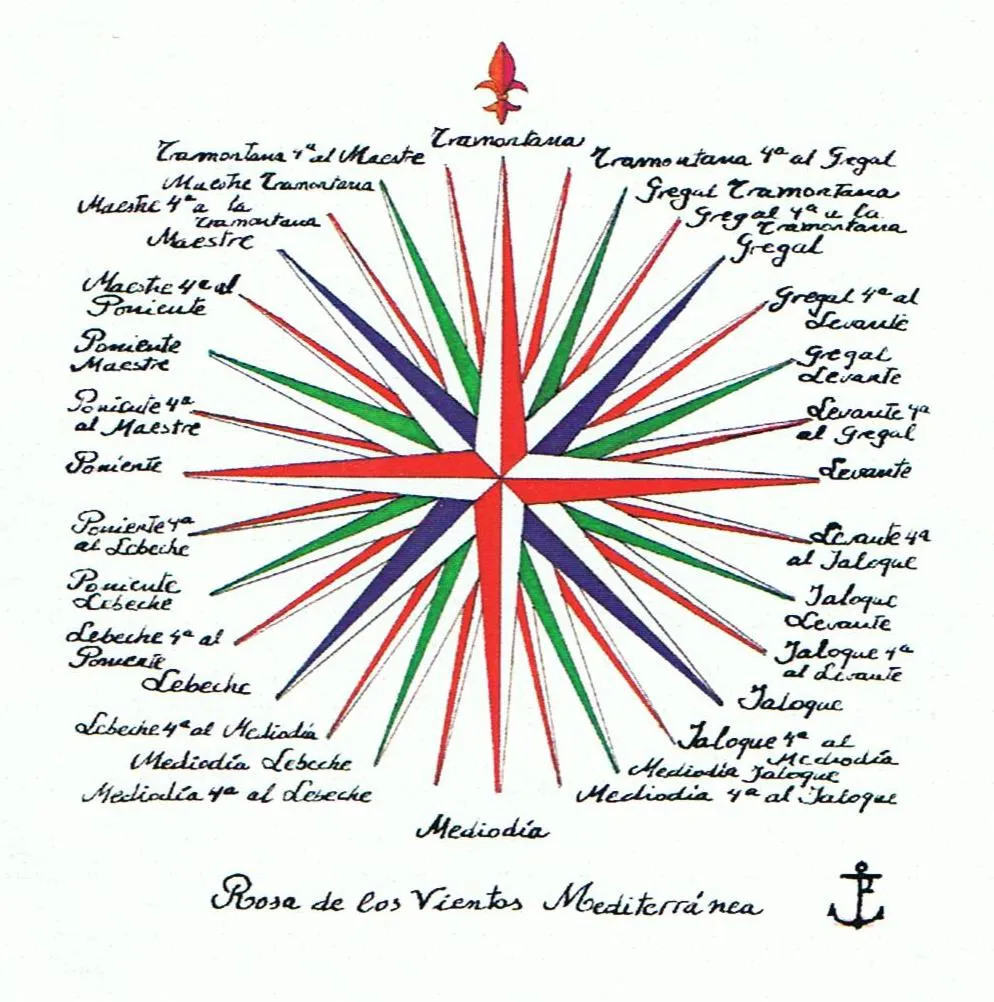 Tramontana
Tramontana 4ª al Maestre
Tramontana 4ª al Gregal
Maestre Tramontana
Gregal Tramontana
Maestre 4ª a la
Tramontana
Gregal 4ª a la
Tramontana
Maestre
Gregal
Maestre 4ª al
Poniente
Gregal 4ª al
Levante
Poniente
Maestre
Gregal
Levante
Poniente 4ª
al Maestre
Levante 4ª
al Gregal
Poniente
Levante
Poniente 4ª
al Lebeche
Levante 4ª
al Jaloque
Poniente
Lebeche
Jaloque
Levante
Lebeche 4ª al
Poniente
Jaloque 4ª
al Levante
Lebeche
Jaloque
Lebeche 4ª al Mediodía
Jaloque 4ª al
Mediodía
Mediodía Lebeche
Mediodia Jaloque
Mediodía 4ª al Lebeche
Mediodia 4ª al Jaloque
Mediodía
Rosa de los Vientos Mediterránea